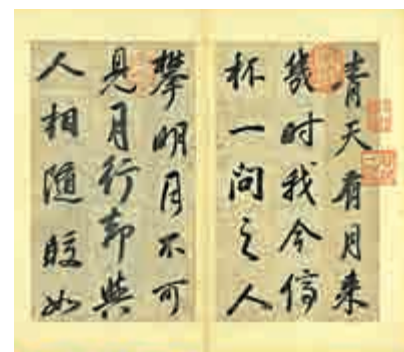 青天有月来
幾时我今停
杯一问之人
攀明月不可
見月行却與
人相隨皎如